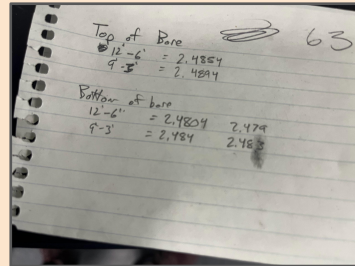 Top of Bore 63
12'-6' = 2.4854
9'-3' = 2.4894
Bottom of bore
12'-6' = 2.4804 2.479
9'-3' = 2.484 2.483